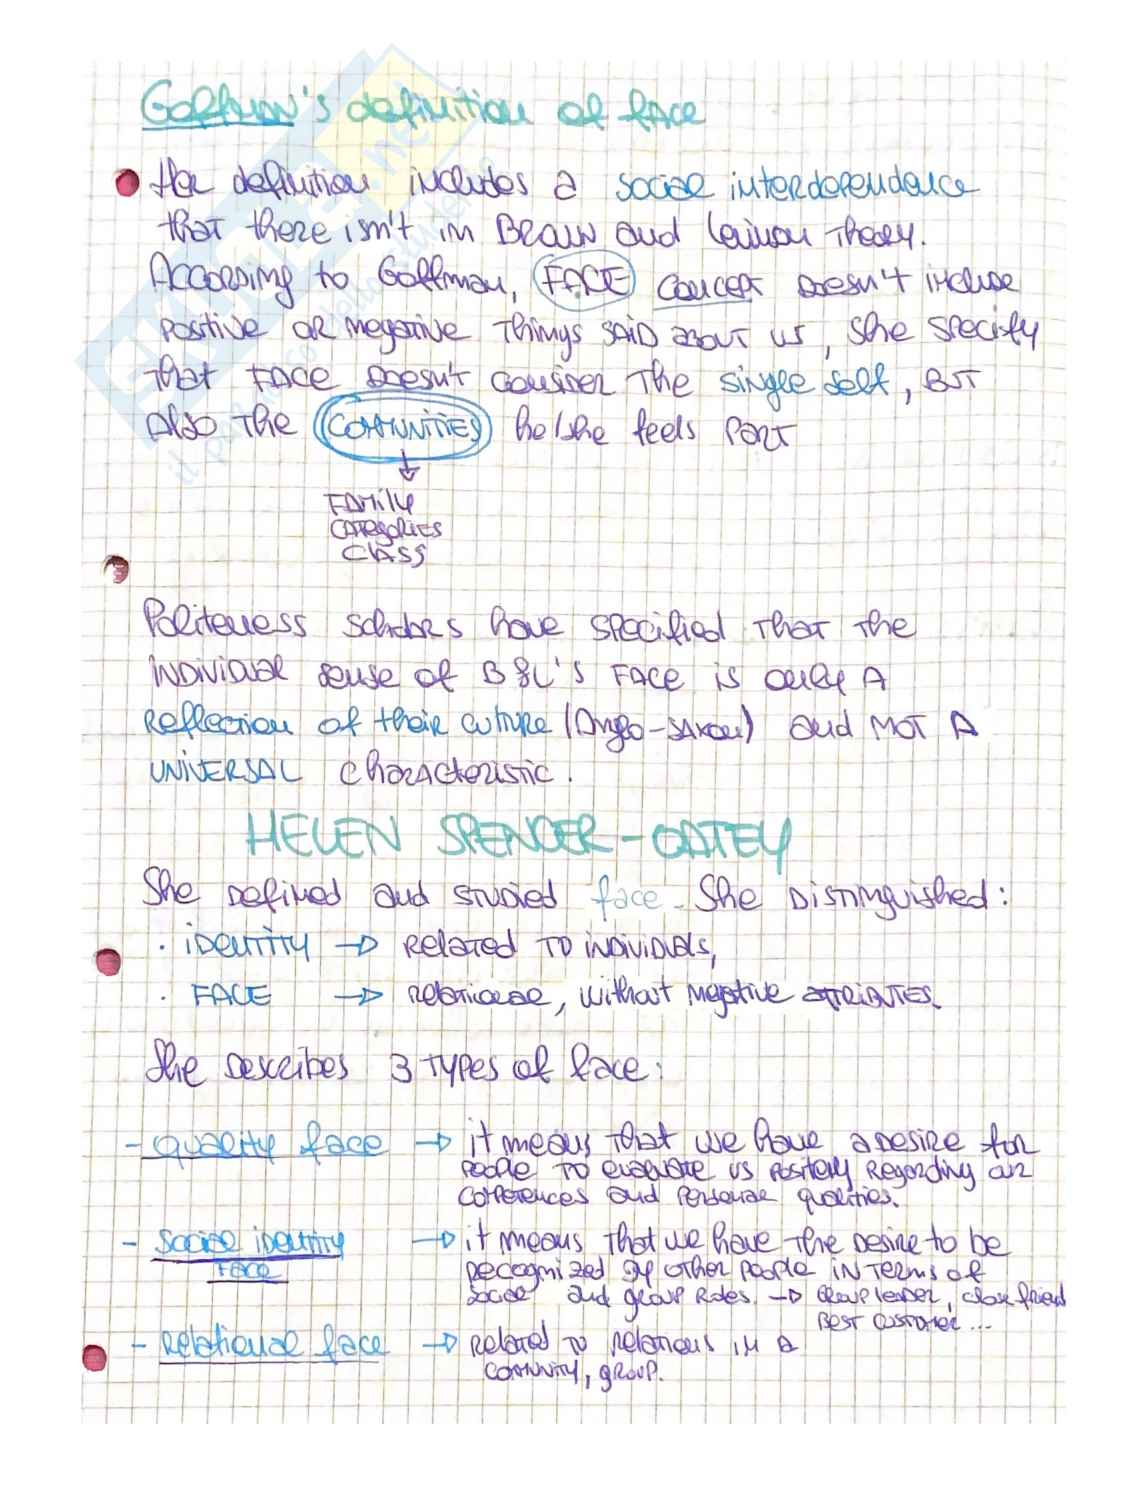 Goffman's definition of face
Her definition includes a social interdependence
that there isn't in Brown and Levinson Theory.
According to Goffman, FACE concept doesn't include
positive or negative things said about us, she specify
that FACE doesn't consider the single self, but
also the COMMUNITIES he/she feels part
Family
categories
class
Politeness scholars have specified that the
individual sense of B&L's FACE is only a
reflection of their culture (Anglo-saxon) and NOT A
UNIVERSAL characteristic.
HELEN SPENCER-OATEY
She defined and studied face. She distinguished:
· identity → related to individuals,
· FACE → relational, without negative attributes.
She describes 3 types of face:
- quality face → it means that we have a desire for
people to evaluate us positely regarding our
competences and personal qualities.
- social identity → it means that we have the desire to be
face recognized by other people in terms of
social and group roles. → group leader, close friend
Best customer...
- Relational face → related to relations in a
community, group.